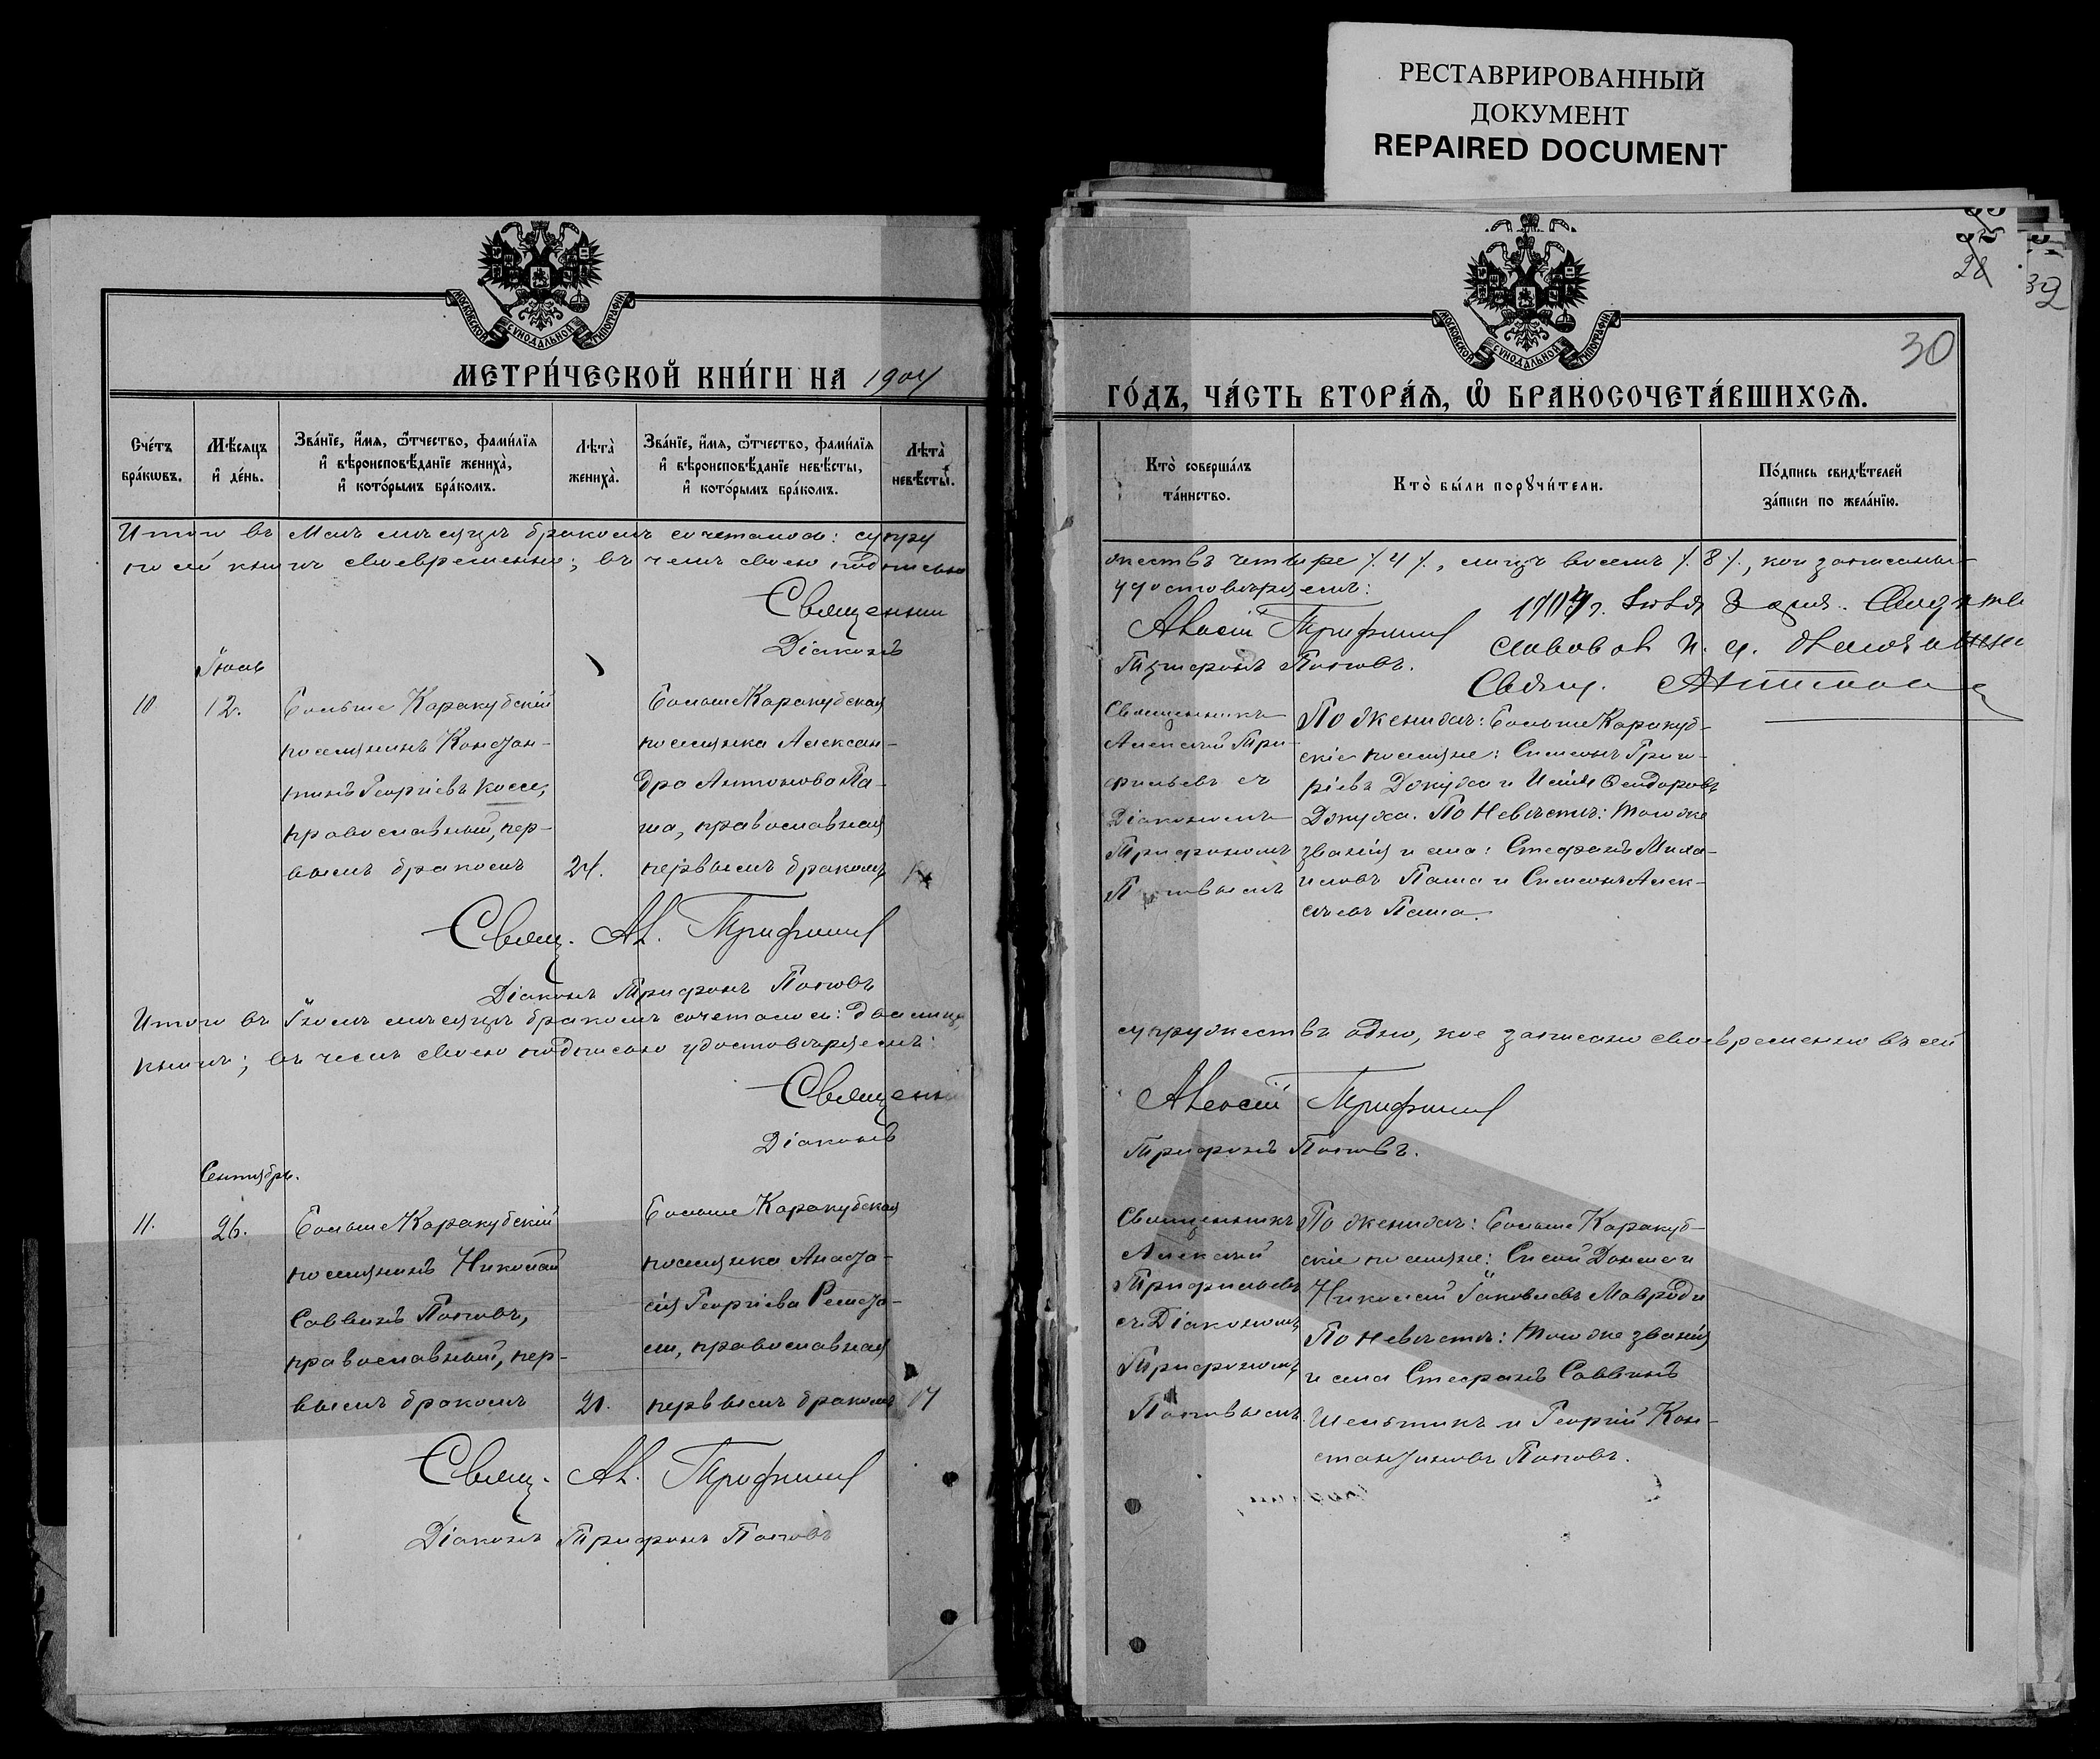 РЕСТАВРИРОВАННЫЙ
ДОКУМЕНТ
REPAIRED DOCUMENT
МОСКОВСКОЙ СѴНОДАЛЬНОЙ ТИПОГРАФІИ
МЕТРИ́ЧЕСКОЙ КНИ́ГИ НА 1904
Сче́тъ бра́кѡвъ.
Мѣ́сяцъ и҆ де́нь.
Зва́нїе, и҆́мѧ, ѻ҆́тчество, фами́лїѧ и҆ вѣроисповѣ́данїе жениха̀, и҆ кото́рымъ бра́комъ.
Лѣта̀ жениха̀.
Зва́нїе, и҆́мѧ, ѻ҆́тчество, фами́лїѧ и҆ вѣроисповѣ́данїе невѣ́сты, и҆ кото́рымъ бра́комъ.
Лѣта̀ невѣ́сты.
Итого въ Маѣ мѣсяцѣ бракомъ сочеталось: супру
по сей книгѣ своевременно; въ чемъ своею подписью
Священни
Діаконъ
Іюль
10 12. Больше Каракубскій
поселянинъ Констан-
тинъ Георгіевъ Коссе,
православный, пер-
вымъ бракомъ 24.
Больше Каракубская
поселянка Алексан-
дра Антонова Па-
ша, православная
первымъ бракомъ
Свящ. Ал. Трифильев
Діаконъ Трифонъ Поповъ
Итого въ Іюлѣ мѣсяцѣ бракомъ сочеталось: два лица,
книгѣ; въ чемъ своею подписью удостовѣряемъ:
Священни
Діаконъ
Сентябрь.
11. 26. Больше Каракубскій
поселянинъ Николай
Саввинъ Поповъ,
православный, пер-
вымъ бракомъ 21.
Больше Каракубская
поселянка Анаста-
сія Георгіева
православная
первымъ бракомъ 17
Свящ. Ал. Трифильев
Діаконъ Трифонъ Поповъ
МОСКОВСКОЙ СѴНОДАЛЬНОЙ ТИПОГРАФІИ
28
32
30
ГО́ДЪ, ЧА́СТЬ ВТОРА́Ѧ, Ѽ БРАКОСОЧЕТА́ВШИХСѦ.
Кто̀ соверша́лъ та́инство.
Кто̀ бы́ли порꙋчи́тели.
По́дпись свидѣ́телей за́писи по жела́нїю.
жествъ четыре /. 4 /., лицъ восемь /. 8 /., кои записаны
удостовѣряемъ:
Алексій Трифильев
Трифонъ Поповъ.
1904 г.
Свящ.
Священникъ
Алексѣй Три-
фильевъ съ
Діакономъ
Трифономъ
Поповымъ
По женихѣ: Больше Каракуб-
скіе поселяне: Симеонъ Григо-
ріевъ и Ѳеодоровъ
По невѣстѣ: того же
званія и села: Стефанъ Миха-
иловъ Паша и Симеонъ Алек-
сѣевъ Паша.
супружествъ одно, кое записано своевременно въ сей
Алексій Трифильев
Трифонъ Поповъ.
Священникъ
Алексѣй
Трифильевъ
съ Діакономъ
Трифономъ
Поповымъ.
По женихѣ: Больше Каракуб-
скіе поселяне:
Николай Іаковлевъ Мавроди
По невѣстѣ: того же званія
и села Стефанъ Саввинъ
и Георгій Кон-
стантиновъ Поповъ.